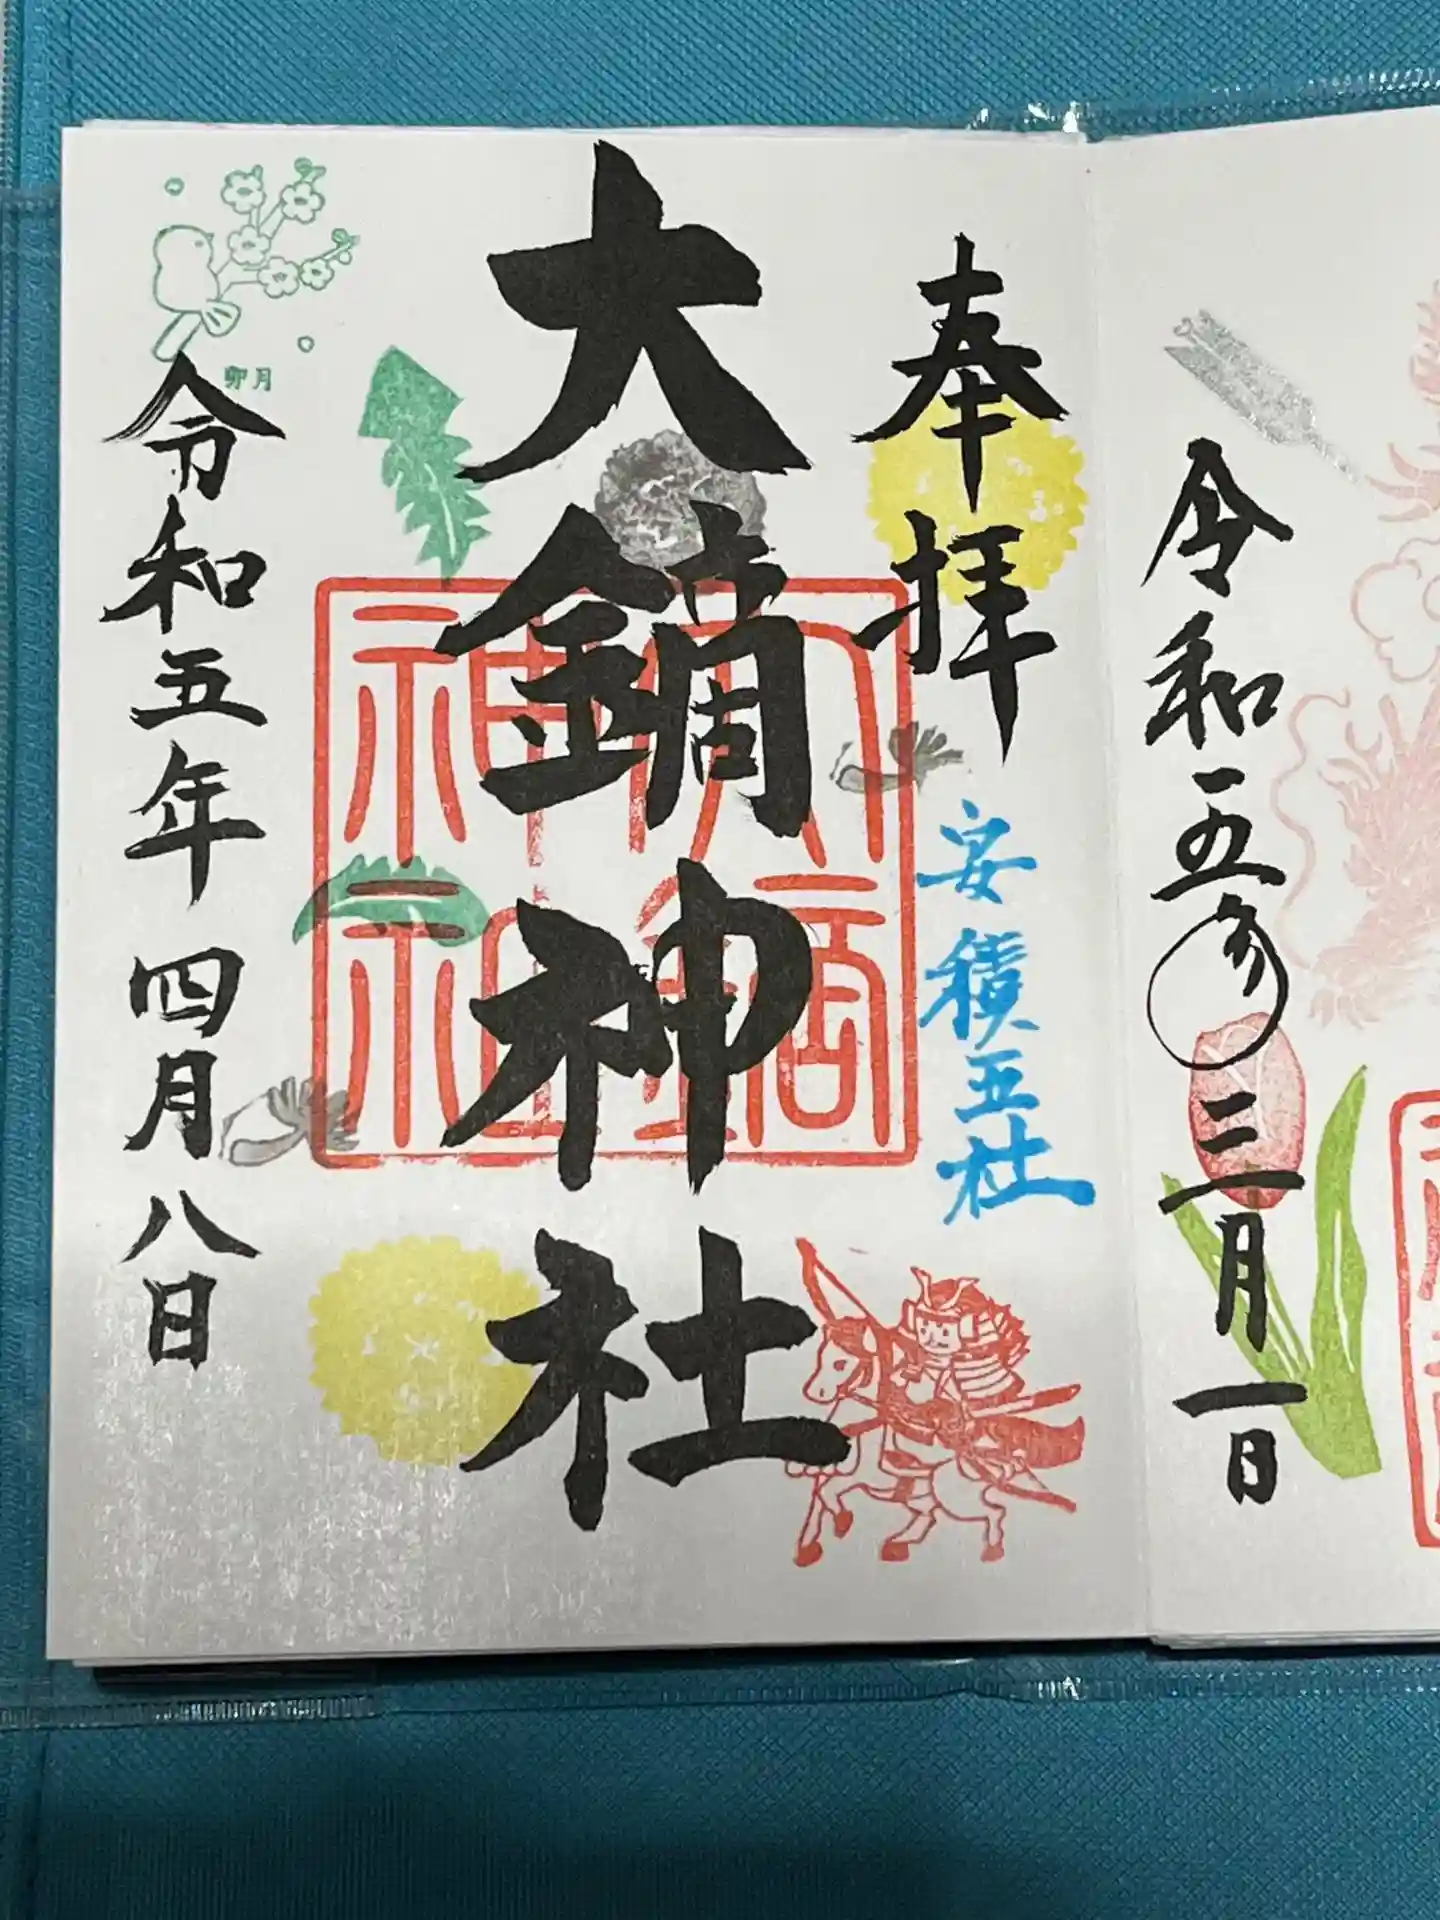 令和五年三月一日
奉拝
安積五社
大鏑神社
大鏑神社
卯月
令和五年四月八日